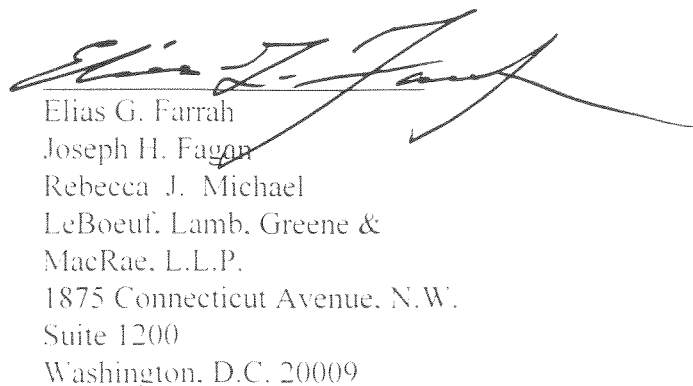 Elias G. Farrah
Elias G. Farrah
Joseph H. Fagan
Rebecca J. Michael
LeBoeuf, Lamb, Greene &
MacRae, L.L.P.
1875 Connecticut Avenue, N.W.
Suite 1200
Washington, D.C. 20009